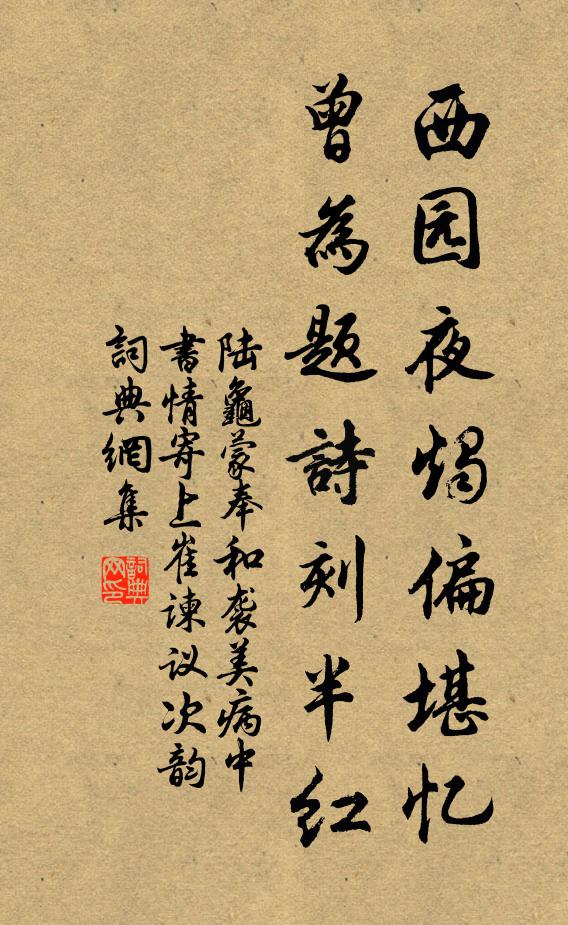 西园夜烛偏堪忆
曾為题詩刻半红
陆龜蒙奉和袭美病中
書情寄上崔谏议次韵
詞典網集
詞典
网印